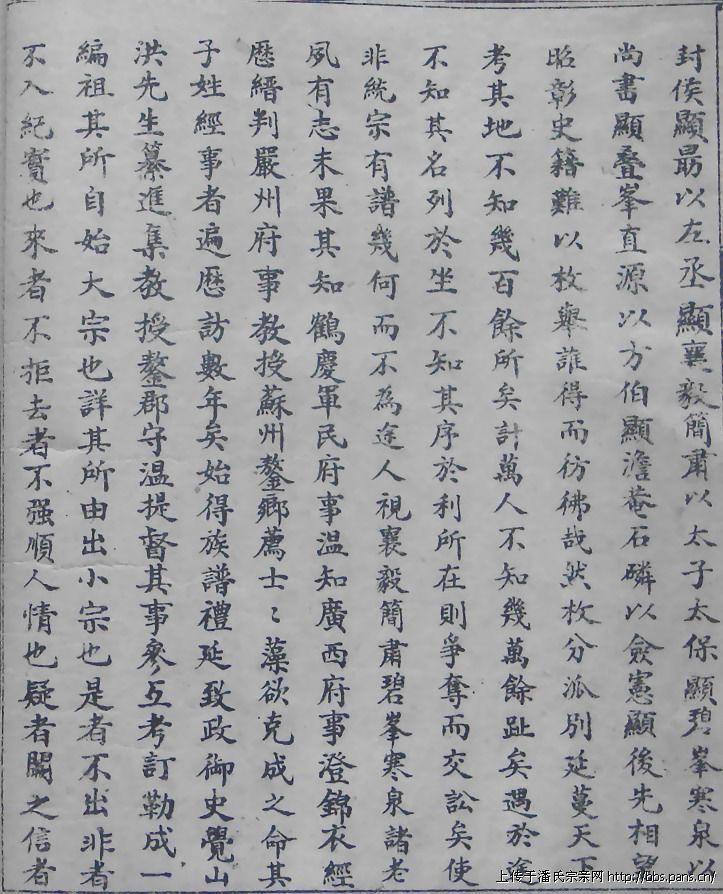 封侯顯勗以左丞顯襄毅簡肅以太子太保顯碧峯寒泉以
尚書顯疊峯直源以方伯顯澹菴石磷以僉憲顯後先相望
昭彰史籍難以枚舉誰得而彷彿哉然枚分派別延蔓天下
考其地不知幾百餘所矣計萬人不知幾萬餘趾矣遇於途
不知其名列於坐不知其序於利所在則爭奪而交訟矣使
非統宗有譜幾何而不為途人視襄毅簡肅碧峯寒泉諸老
夙有志未果其知鶴慶軍民府事溫知廣西府事澄錦衣經
歷縉判嚴州府事教授蘇州鏊鄉薦士〻藻欲克成之命其
子姓經事者遍歷訪數年矣始得族譜禮延致政御史覺山
洪先生纂進集教授鏊郡守溫提督其事參互考訂勒成一
編祖其所自始大宗也詳其所由出小宗也是者不出非者
不入紀實也來者不拒去者不强順人情也疑者闕之信者
上传于潘氏宗亲网 http://bbs.pans.cn/